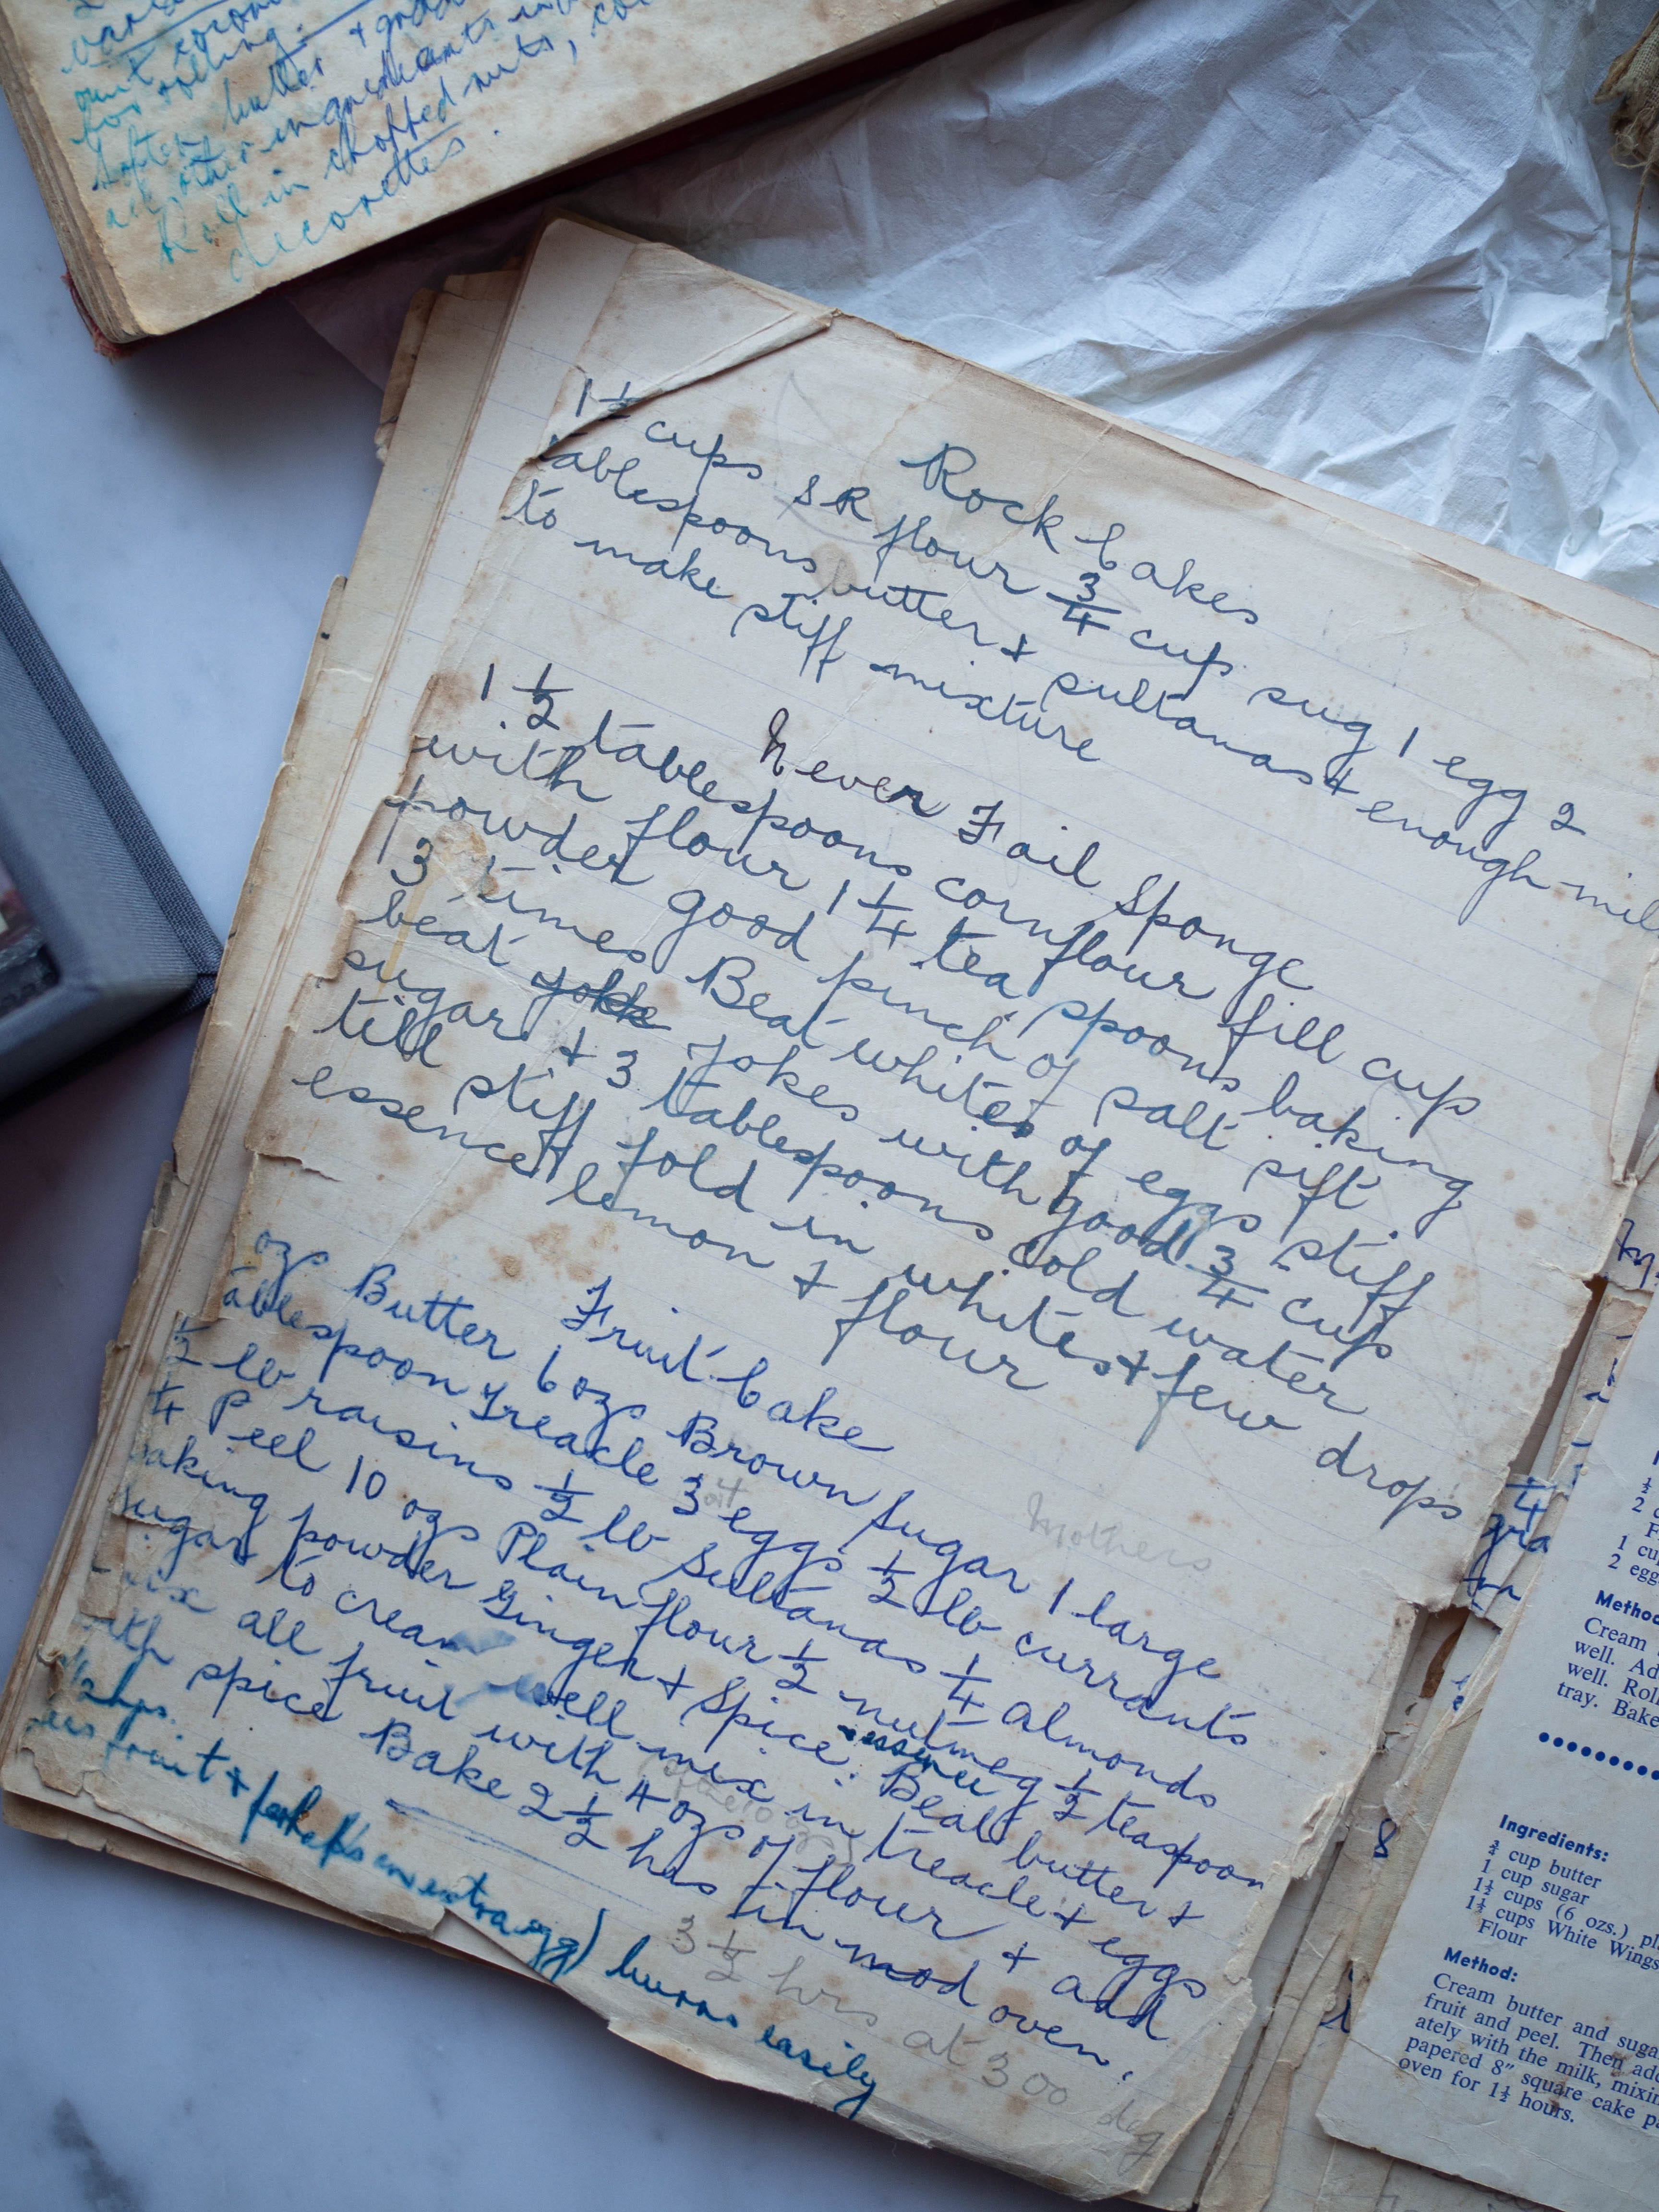 for rolling.
Soften butter + add
all other ingredients
Roll in chopped nuts,
decorettes.
Rock Cakes
1 1/2 cups SR flour 3/4 cup sug 1 egg 2
tablespoons butter + sultanas + enough mil
to make stiff mixture
Never Fail Sponge
1 1/2 tablespoons cornflour fill cup
with flour 1 1/4 tea spoons baking
powder good pinch of salt sift
3 times Beat whites of eggs stiff
beat yokes with good 3/4 cup
sugar + 3 tablespoons cold water
till stiff fold in whites + few drops
essence lemon + flour
Fruit Cake
Mothers
ozs Butter 6 ozs Brown Sugar 1 large
ablespoon Treacle 3 eggs 1/2 lb currants
1/2 lb raisins 1/2 lb Sultanas 1/4 almonds
1/4 Peel 10 ozs Plain flour 1/2 nutmeg 1/2 teaspoon
baking powder Ginger + Spice. Beat butter +
sugar to cream well mix in treacle + eggs
mix all fruit with 4 ozs of flour + add
with spice Bake 2 1/2 hrs in mod oven.
3 1/2 hrs at 300 deg
fruit + perhaps an extra egg) burns easily
1/4
8
2 egg
Method
Cream
well. Ad
well. Roll
tray. Bake
Ingredients:
3/4 cup butter
1 cup sugar
1 1/2 cups (6 ozs.) pl
1 1/4 cups White Wings
Flour
Method:
Cream butter and suga
fruit and peel. Then add
ately with the milk, mixin
papered 8" square cake pa
oven for 1 1/2 hours.